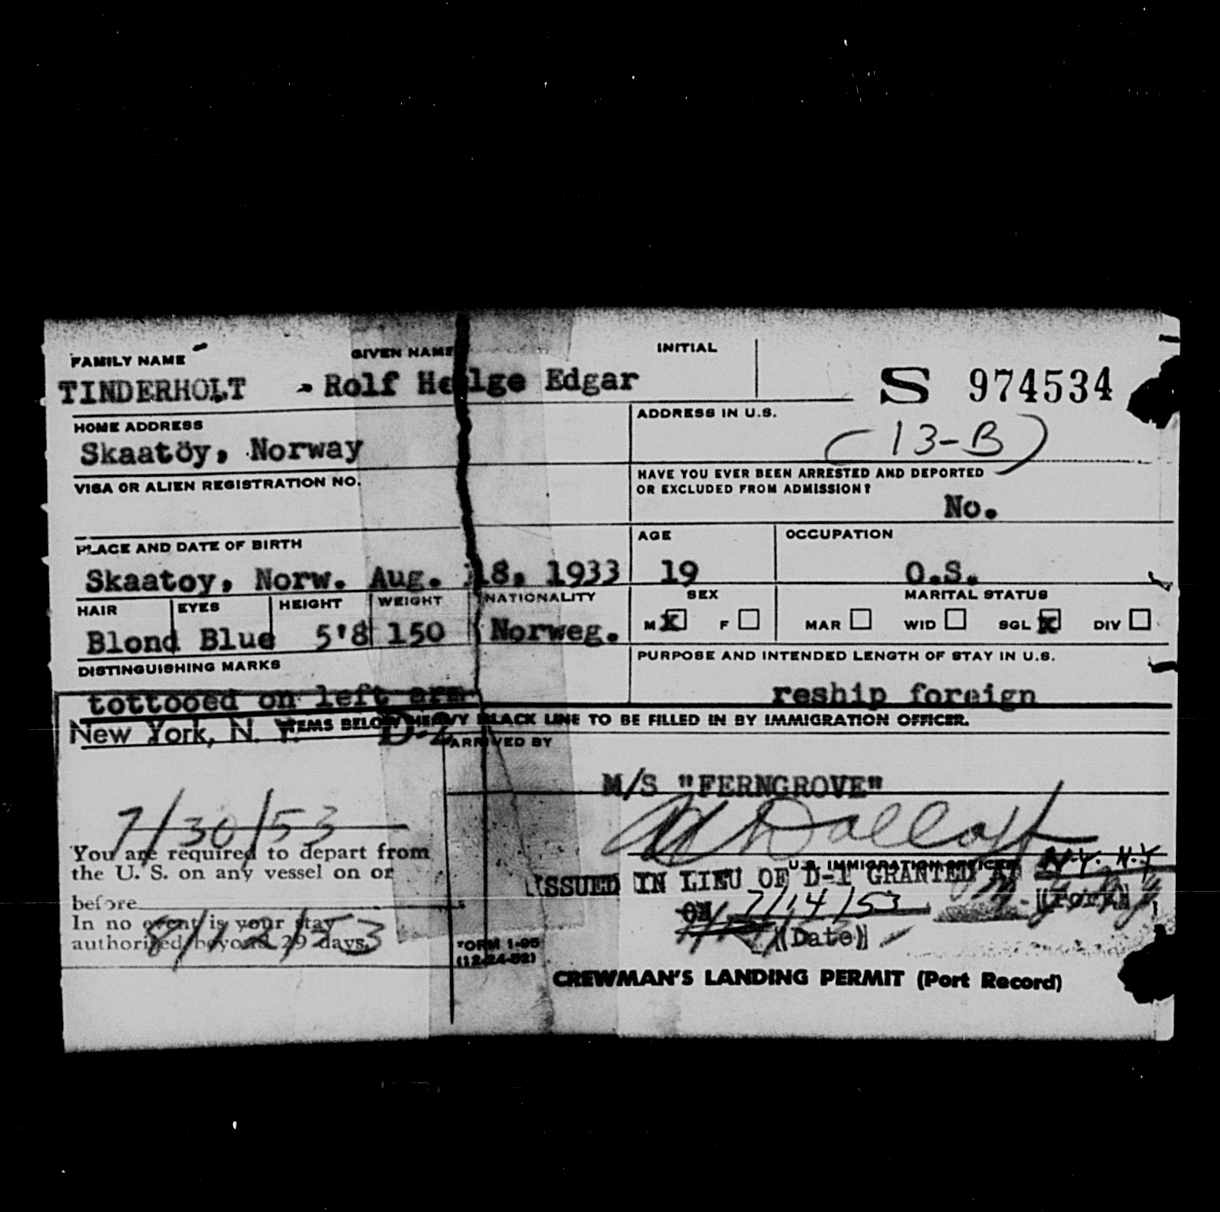 FAMILY NAME GIVEN NAME INITIAL
TINDERHOLT - Rolf Helge Edgar S 974534
HOME ADDRESS ADDRESS IN U.S.
Skaatöy, Norway (13-B)
VISA OR ALIEN REGISTRATION NO. HAVE YOU EVER BEEN ARRESTED AND DEPORTED
OR EXCLUDED FROM ADMISSION?
No.
PLACE AND DATE OF BIRTH AGE OCCUPATION
Skaatoy, Norw. Aug. 18, 1933 19 O.S.
HAIR EYES HEIGHT WEIGHT NATIONALITY SEX MARITAL STATUS
Blond Blue 5'8 150 Norweg. M X F MAR WID SGL X DIV
DISTINGUISHING MARKS PURPOSE AND INTENDED LENGTH OF STAY IN U.S.
tottooed on left arm reship foreign
ITEMS BELOW HEAVY BLACK LINE TO BE FILLED IN BY IMMIGRATION OFFICER.
New York, N. Y. D-2 ARRIVED BY
M/S "FERNGROVE"
7/30/53
You are required to depart from
the U. S. on any vessel on or
before
In no event is your stay
authorized beyond 29 days.
8/12/53
U.S. IMMIGRATION OFFICER
ISSUED IN LIEU OF D-1 GRANTED AT N.Y. N.Y
ON 7/14/53 (Port)
(Date)
FORM I-95
(12-24-52)
CREWMAN'S LANDING PERMIT (Port Record)